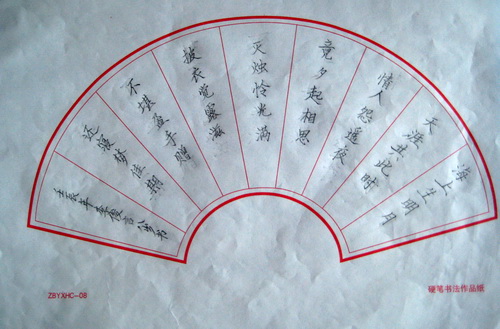 海上生明月
天涯共此时
情人怨遥夜
竟夕起相思
灭烛怜光满
披衣觉露滋
不堪盈手赠
还寝梦佳期
壬辰年 书
ZBYXHC-08
硬笔书法作品纸